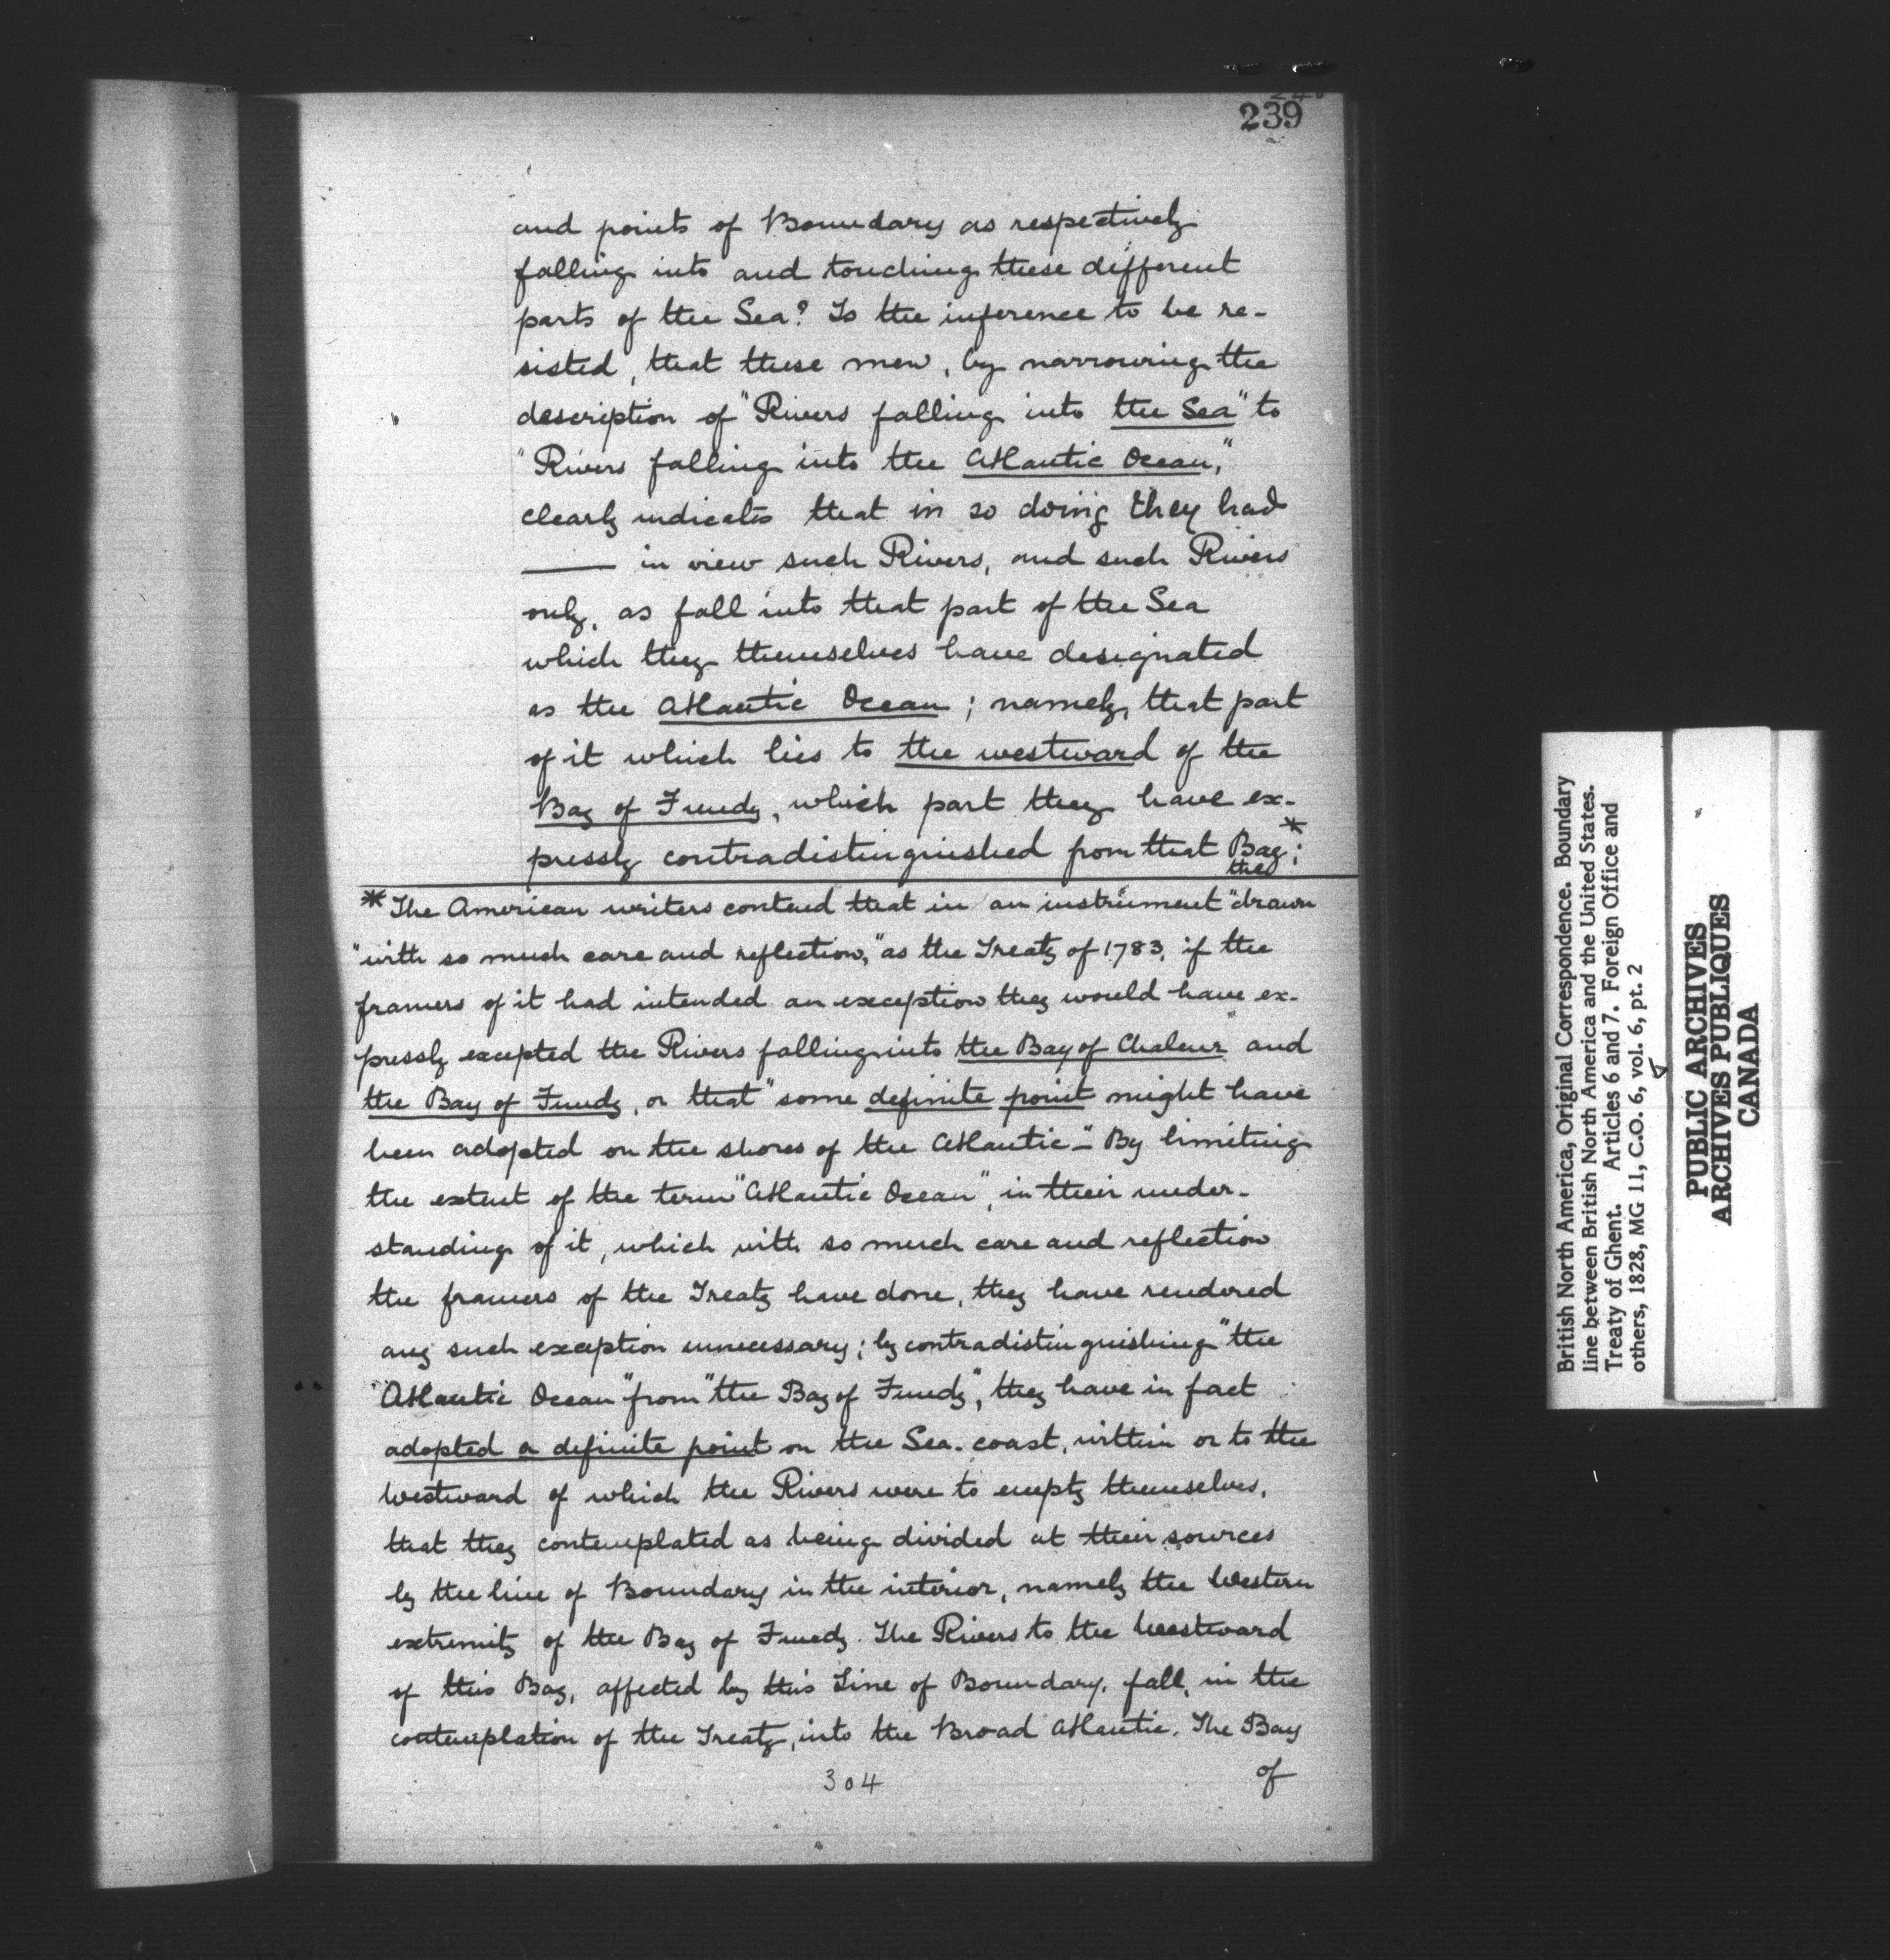 239
and points of Boundary as respectively
falling into and touching these different
parts of the Sea? Is the inference to be re-
sisted, that these men, by narrowing the
description of "Rivers falling into the Sea" to
"Rivers falling into the Atlantic Ocean,"
clearly indicates that in so doing they had
—— in view such Rivers, and such Rivers
only, as fall into that part of the Sea
which they themselves have designated
as the Atlantic Ocean; namely, that part
of it which lies to the westward of the
Bay of Fundy, which part they have ex-
pressly contradistinguished from that Bay;*
the
* The American writers contend that in an instrument "drawn
"with so much care and reflection," as the Treaty of 1783, if the
framers of it had intended an exception they would have ex-
pressly excepted the Rivers falling into the Bay of Chaleur" and
the Bay of Fundy, or that "some definite point might have
been adopted on the shores of the Atlantic-" By limiting
the extent of the term "Atlantic Ocean", in their under-
standing of it, which with so much care and reflection
the framers of the Treaty have done, they have rendered
any such exception unnecessary; by contradistinguishing "the
Atlantic Ocean" from "the Bay of Fundy", they have in fact
adopted a definite point on the Sea-coast, within or to the
Westward of which the Rivers were to empty themselves,
that they contemplated as being divided at their sources
by the line of Boundary in the interior, namely the Western
extremity of the Bay of Fundy. The Rivers to the Westward
of this Bay, affected by this Line of Boundary, fall, in the
contemplation of the Treaty, into the Broad Atlantic. The Bay
of
304
British North America, Original Correspondence. Boundary
line between British North America and the United States.
Treaty of Ghent. Articles 6 and 7. Foreign Office and
others, 1828, MG 11, C.O. 6, vol. 6, pt. 2
PUBLIC ARCHIVES
ARCHIVES PUBLIQUES
CANADA